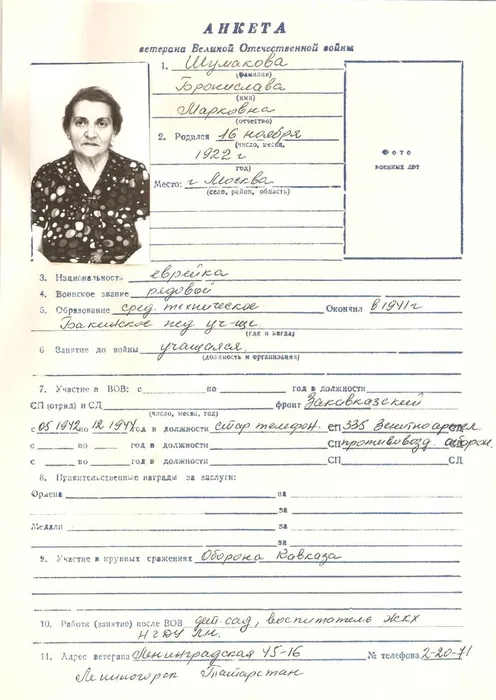 АНКЕТА
ветерана Великой Отечественной войны
1. Шумакова
(фамилия)
Бронислава
(имя)
Марковна
(отчество)
2. Родился 16 ноября
(число, месяц,
1922 г
год)
Место: г Москва
(село, район, область)
Фото
военных лет
3. Национальность еврейка
4. Воинское звание рядовой
5. Образование сред. техническое Окончил в 1941 г
Бакинское пед уч-ще.
(где и когда)
6 Занятие до войны учащаяся
(должность и организация)
7. Участие в ВОВ: с по год в должности
СП (отряд) в СД фронт Закавказский
(число, месяц, год)
с 05 1942 по 12 1944 год в должности стар телефон. СП 335 Зенитно артел
с по год в должности СП противовозд. оборон.
с по год в должности СП СД
8. Правительственные награды за заслуги:
Ордена за
за
Медали за
за
9. Участие в крупных сражениях Оборона Кавказа
10. Работа (занятие) после ВОВ дет. сад, воспитатель ЖКХ
НГДУ
11. Адрес ветерана Ленинградская 45-16 № телефона 2-20-71
Лениногорск Татарстан